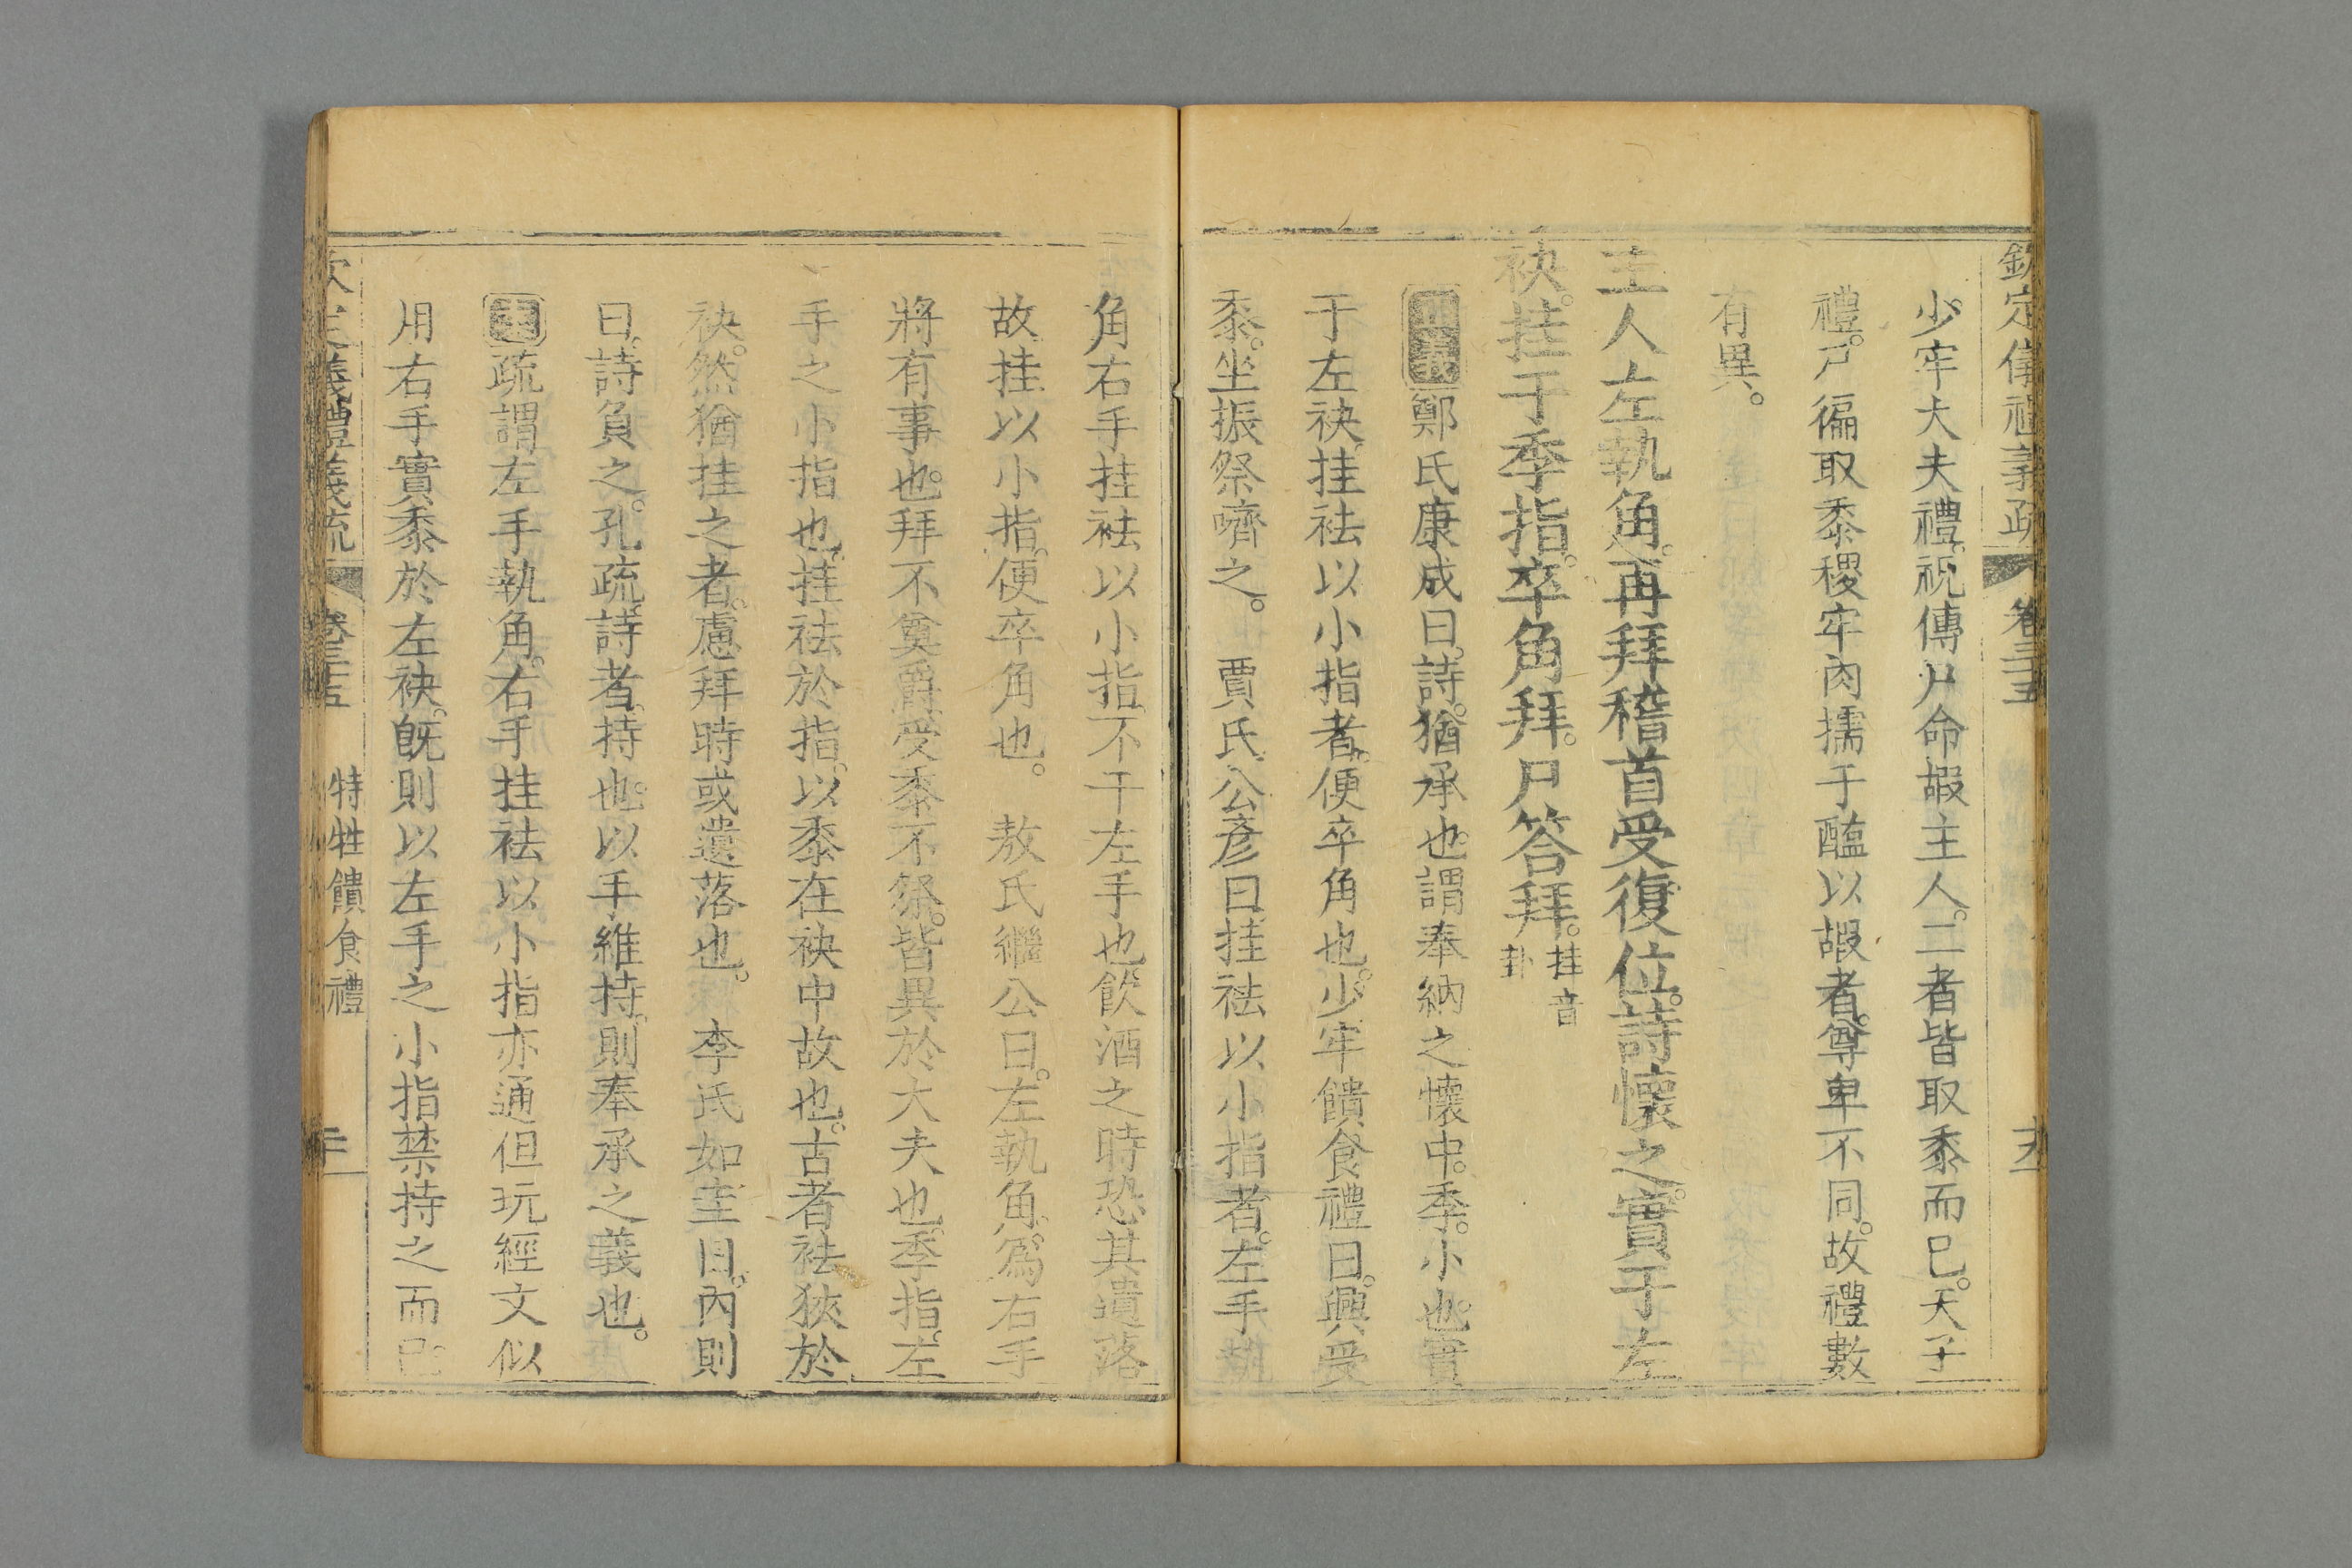 欽定儀禮義疏 卷三十五 十九
少牢大夫禮。祝傳尸命嘏主人。二者皆取黍而已。天子
禮。尸徧取黍稷牢肉擩于醢以嘏者。尊卑不同。故禮數
有異。
主人左執角。再拜稽首受復位。詩懷之。實于左
袂。挂于季指。卒角拜。尸答拜。挂音卦
鄭氏康成曰。詩。猶承也。謂奉納之懷中。季。小也。實
于左袂。挂袪以小指者。便卒角也。少牢饋食禮曰。興受
黍。坐振祭嚌之。 賈氏公彥曰。挂袪以小指者。左手執
角右手挂袪以小指。不干左手也。飲酒之時恐其遺落
故挂以小指。便卒角也。 敖氏繼公曰。左執角。爲右手
將有事也。拜不奠爵受黍不祭。皆異於大夫也。季指。左
手之小指也。挂袪於指。以黍在袂中故也。古者袪狹於
袂。然猶挂之者。慮拜時或遺落也。 李氏如圭曰。內則
曰。詩負之。孔疏。詩者。持也。以手維持。則奉承之義也。
疏謂左手執角。右手挂袪以小指亦通但玩經文似
用右手實黍於左袂。旣則以左手之小指禁持之而已
欽定儀禮義疏 卷三十五 特牲饋食禮 二十